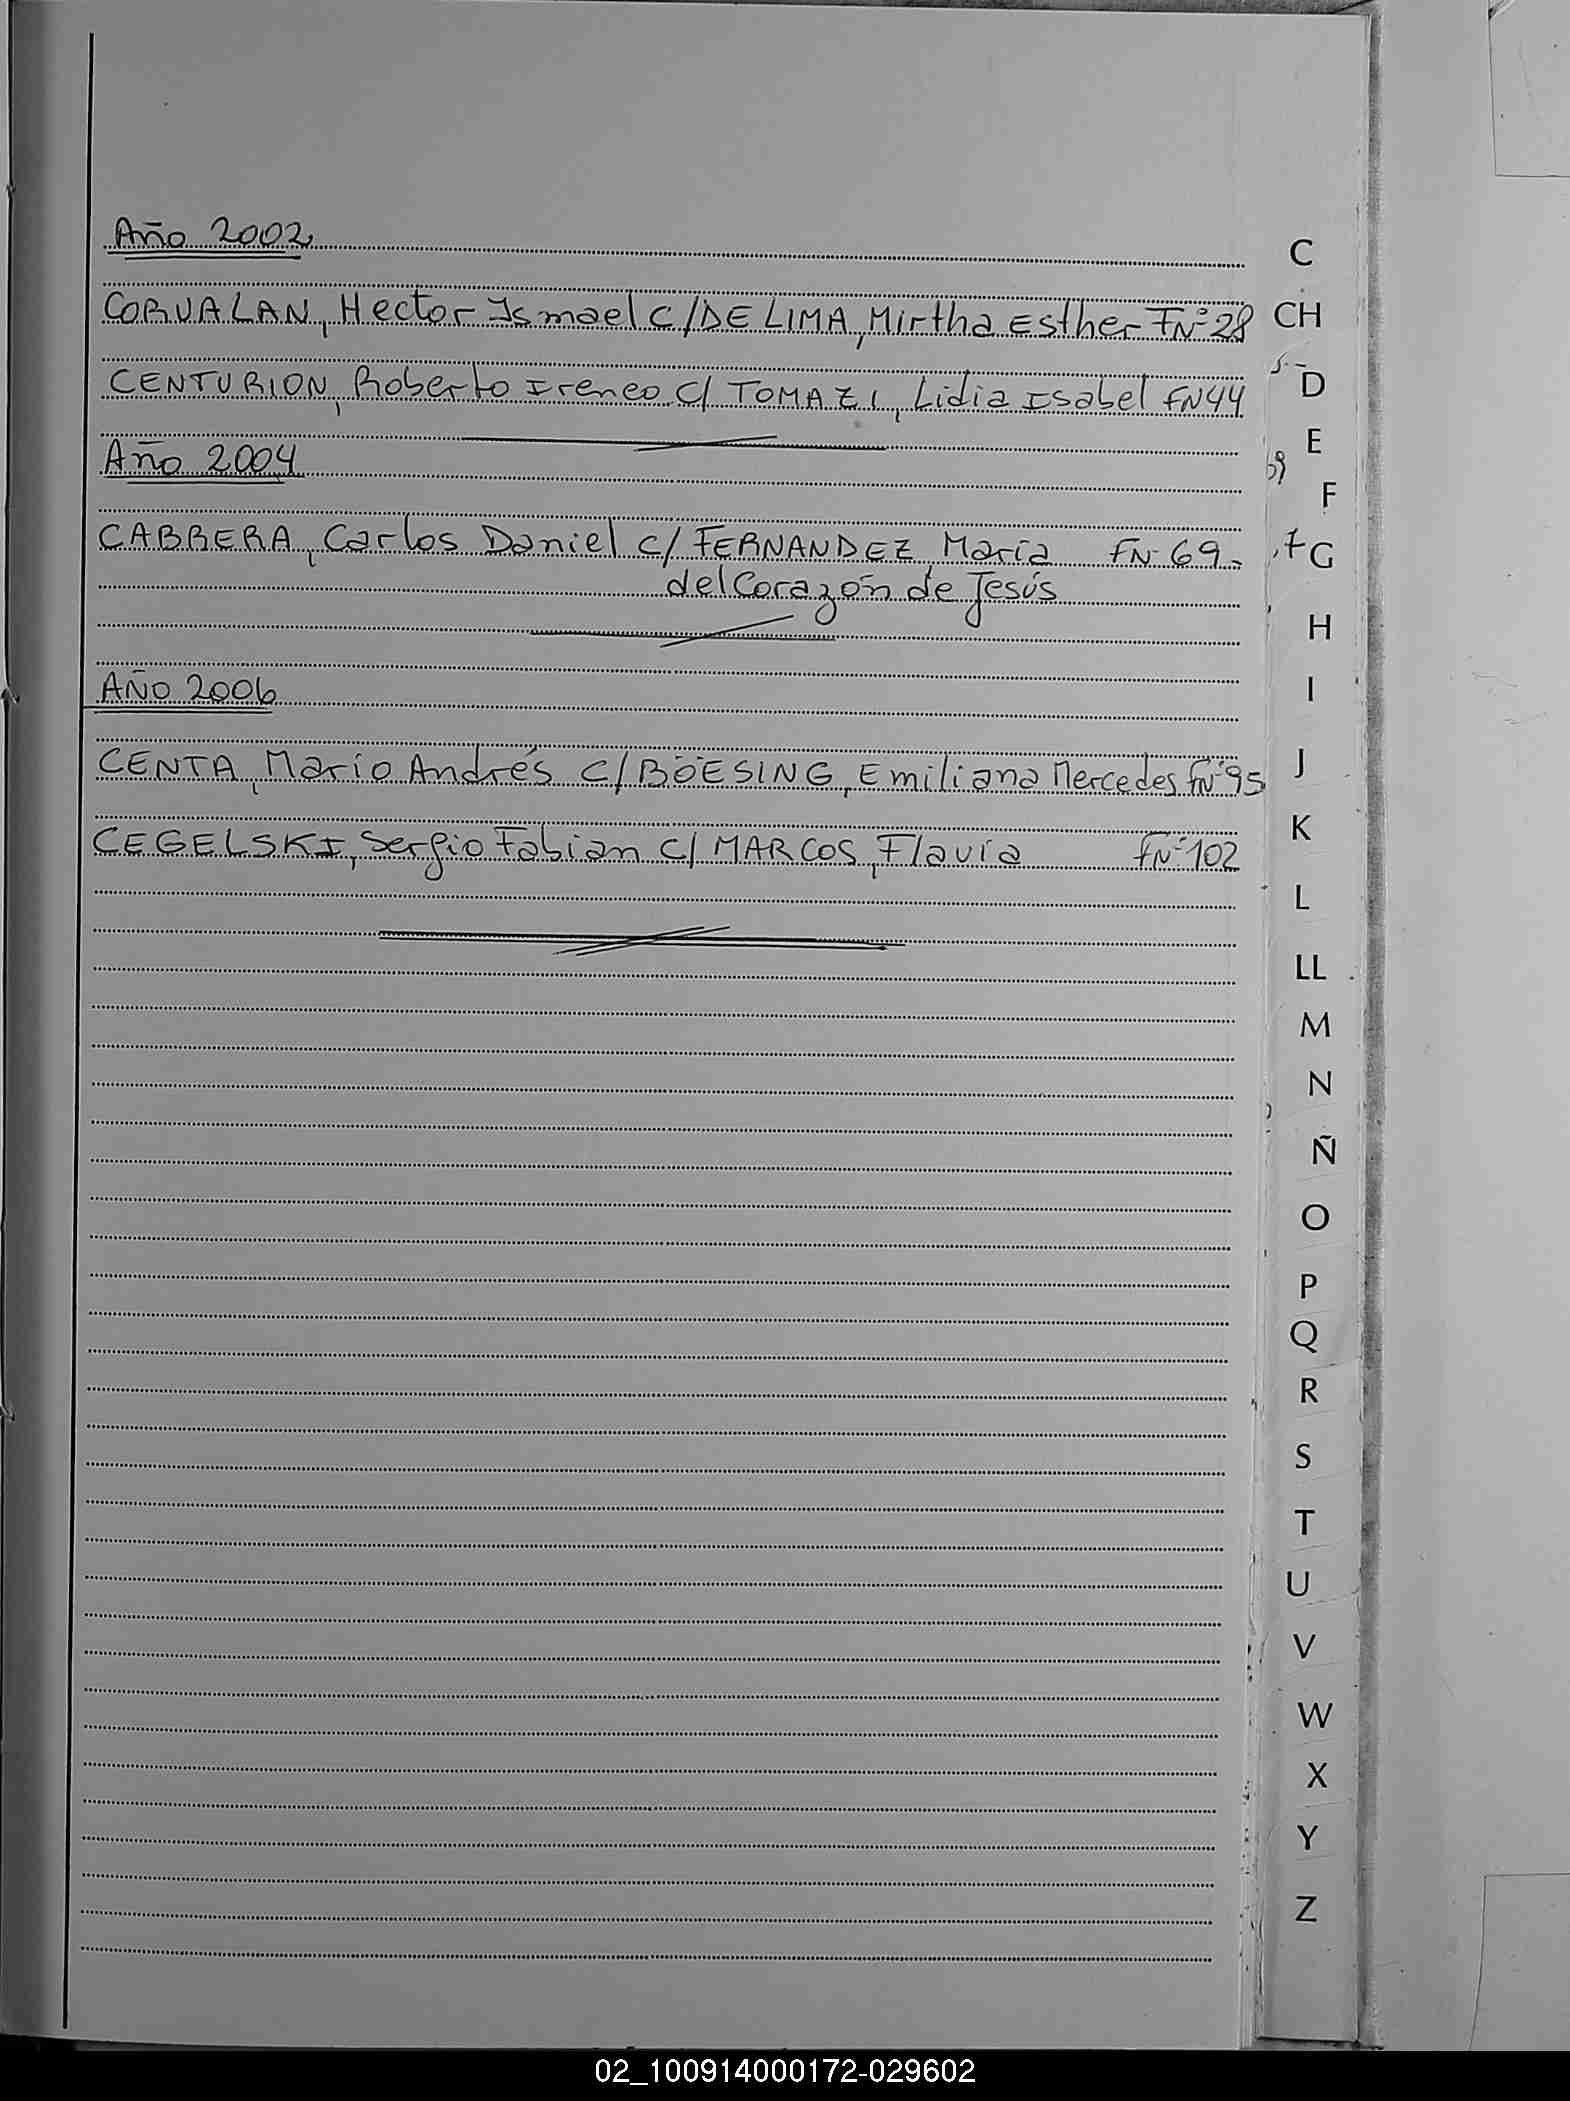 Año 2002
CORVALAN, Hector Ismael c/ DE LIMA, Mirtha Esther FNº 28
CENTURION, Roberto Ireneo c/ TOMAZI, Lidia Isabel FN 44
Año 2004
CABRERA, Carlos Daniel c/ FERNANDEZ María FN- 69-
del Corazón de Jesús
AÑO 2006
CENTA, Mario Andrés c/ BÖESING, Emiliana Mercedes FNº 95
CEGELSKI, Sergio Fabian c/ MARCOS, Flavia FNº 102
C
CH
D
E
F
G
H
I
J
K
L
LL
M
N
Ñ
O
P
Q
R
S
T
U
V
W
X
Y
Z
02_100914000172-029602